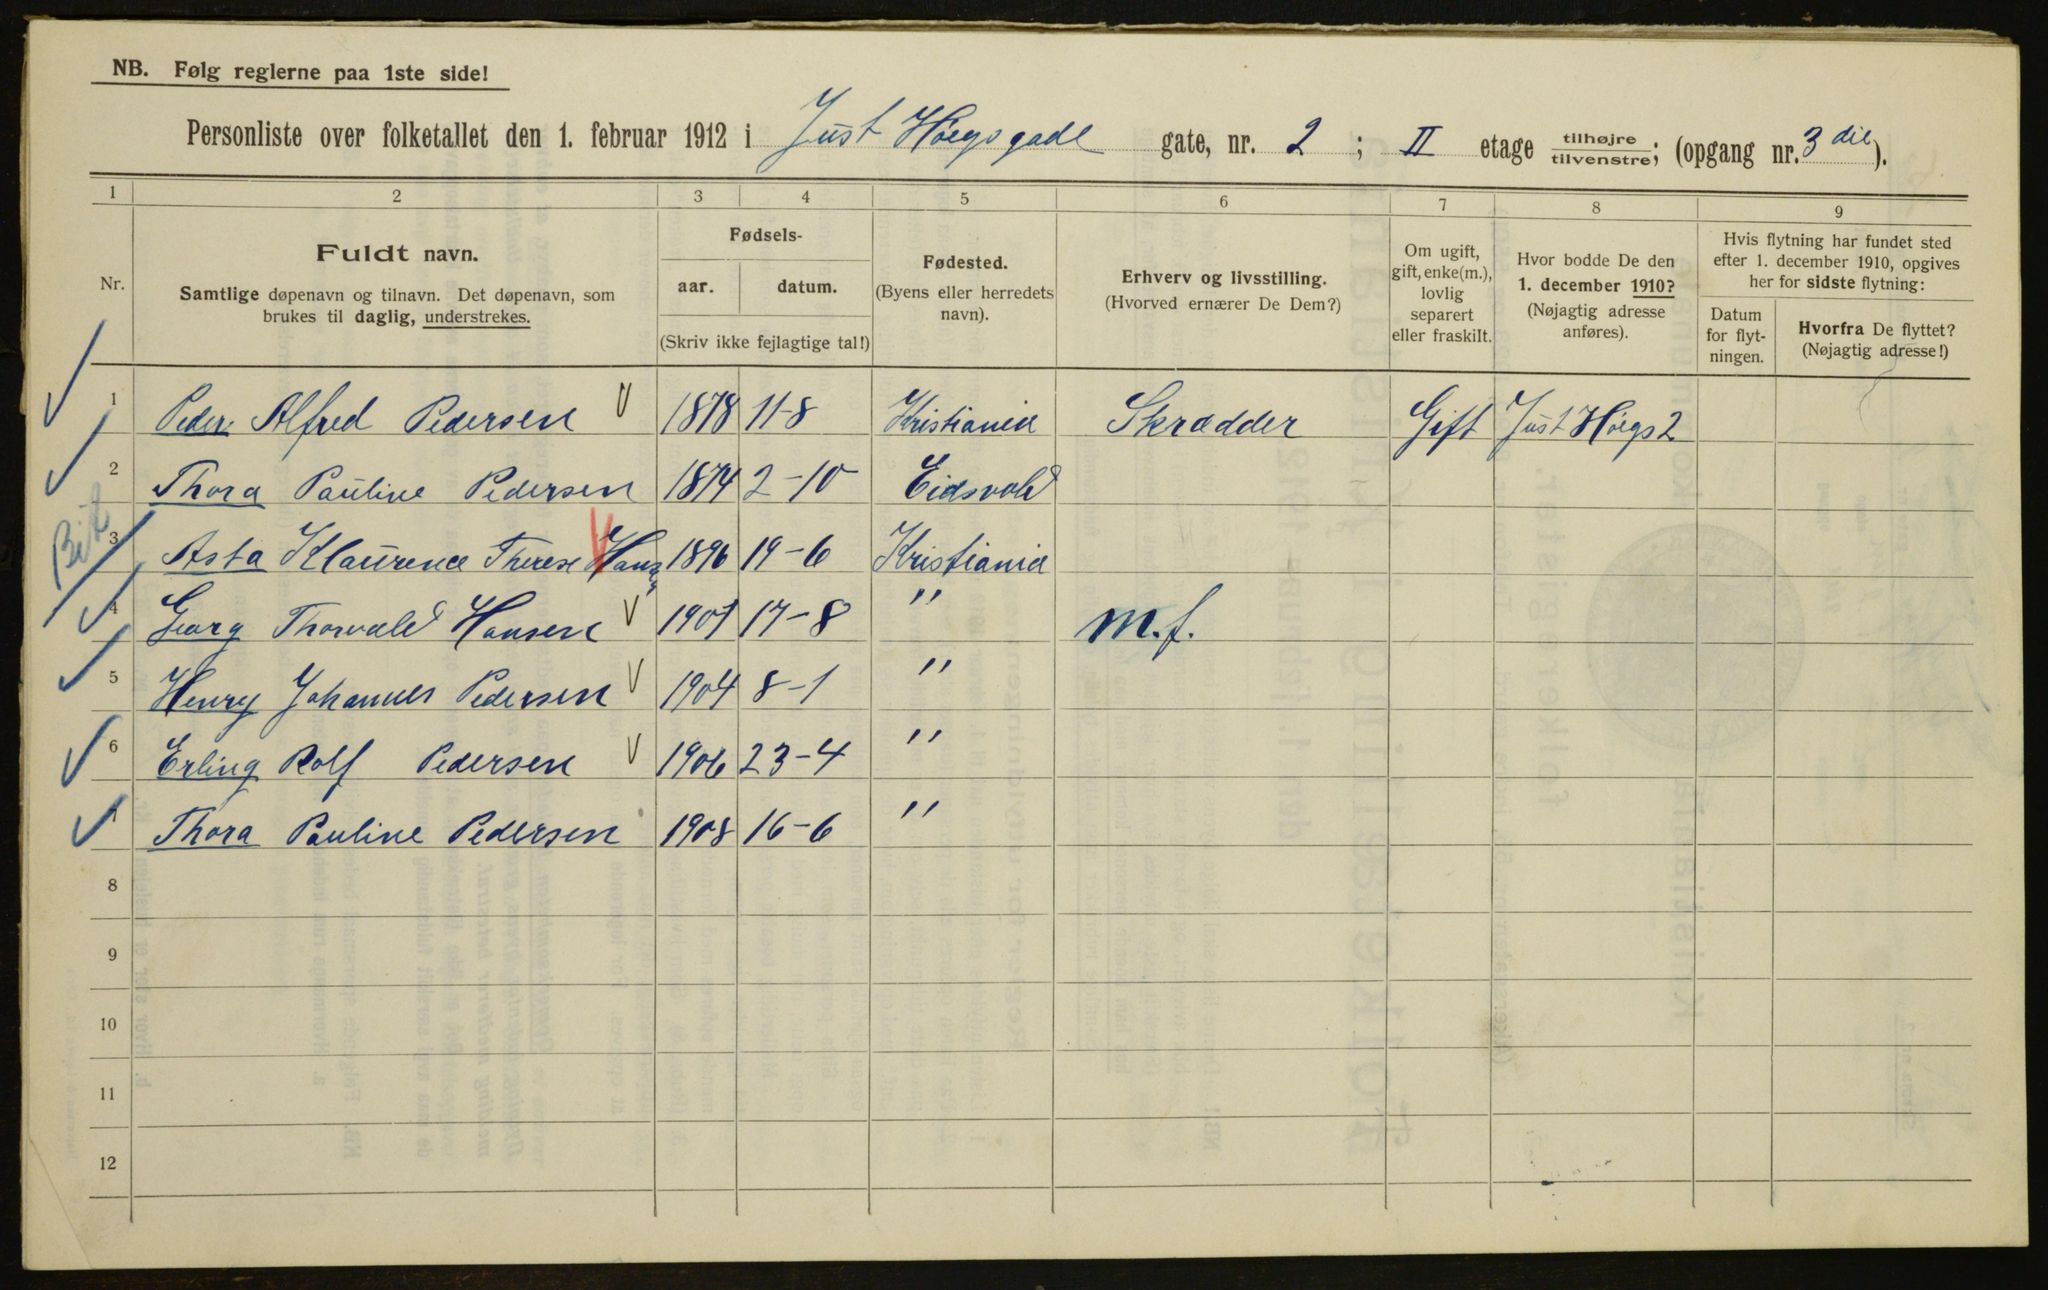 NB. Følg reglerne paa 1ste side!
Personliste over folketallet den 1. februar 1912 i Just Høegs gade gate, nr. 2; II etage tilhøjre/tilvenstre; (opgang nr. 3 die).
1 2 3 4 5 6 7 8 9
Nr.
Fuldt navn.
Samtlige døpenavn og tilnavn. Det døpenavn, som
brukes til daglig, understrekes.
Fødsels-
aar. datum.
(Skriv ikke fejlagtige tal!)
Fødested.
(Byens eller herredets
navn).
Erhverv og livsstilling.
(Hvorved ernærer De Dem?)
Om ugift,
gift, enke(m.),
lovlig
separert
eller fraskilt.
Hvor bodde De den
1. december 1910?
(Nøjagtig adresse
anføres).
Hvis flytning har fundet sted
efter 1. december 1910, opgives
her for sidste flytning:
Datum
for flyt-
ningen.
Hvorfra De flyttet?
(Nøjagtig adresse!)
1 Peder Alfred Pedersen V 1878 11-8 Kristiania Skrædder Gift Just Høegs 2
2 Thora Pauline Pedersen 1874 2-10 Eidsvold
3 Asta Klaurence Therese Hansen 1896 19-6 Kristiania
4 Georg Thorvald Hansen V 1901 17-8 " m.f.
5 Henry Johannes Pedersen V 1904 8-1 "
6 Erling Rolf Pedersen V 1906 23-4 "
7 Thora Pauline Pedersen 1908 16-6 "
8
9
10
11
12